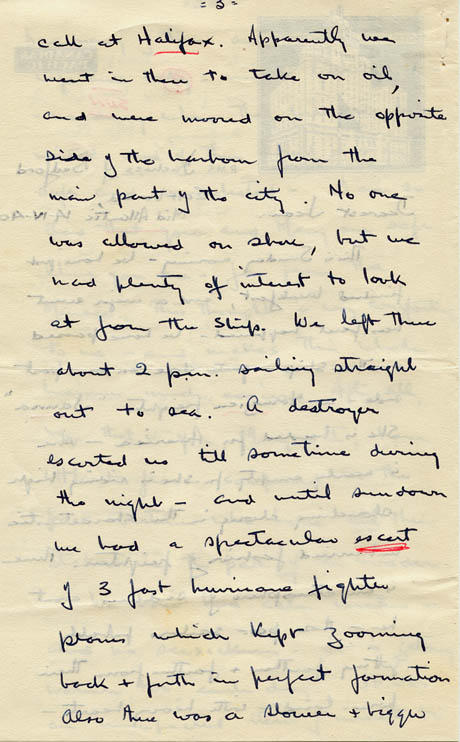 = 3 =
call at Halifax. Apparently we
went in there to take on oil,
and were moored on the opposite
side of the harbour from the
main part of the city. No one
was allowed on shore, but we
had plenty of interest to look
at from the ship. We left there
about 2 p.m. sailing straight
out to sea. A destroyer
escorted us till sometime during
the night - and until sundown
we had a spectacular escort
of 3 fast hurricane fighter
planes which kept zooming
back + forth in perfect formation
Also there was a slower + bigger